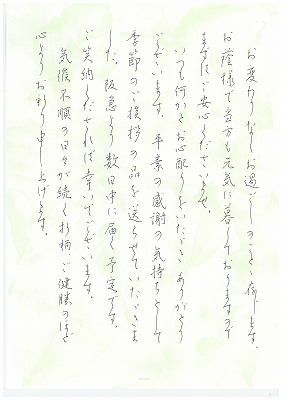 お変わりなくお過ごしのことと存じます。
お蔭様で当方も元気に暮しておりますので
まずはご安心くださいませ。
いつも何かとお心配りをいただき ありがとう
ございます。平素の感謝の気持ちとして
季節のご挨拶の品を送らせていただきま
した。阪急より数日中に届く予定です。
ご笑納くだされば幸いでございます。
気候不順の日々が続く折柄、ご健勝のほど
心よりお祈り申し上げます。